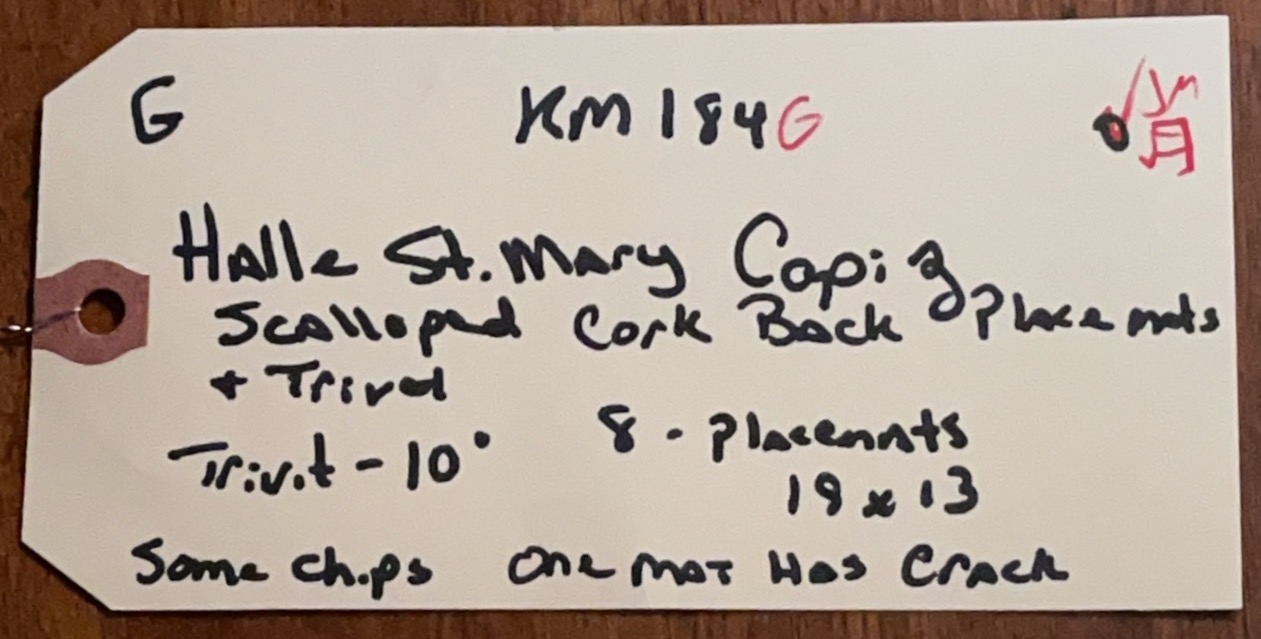 G KM184G
Halle St. Mary Capiz
Scalloped Cork Back Placemats
+ Trivet
Trivit - 10" 8 - Placemats
19 x 13
Some chips One mat Has Crack